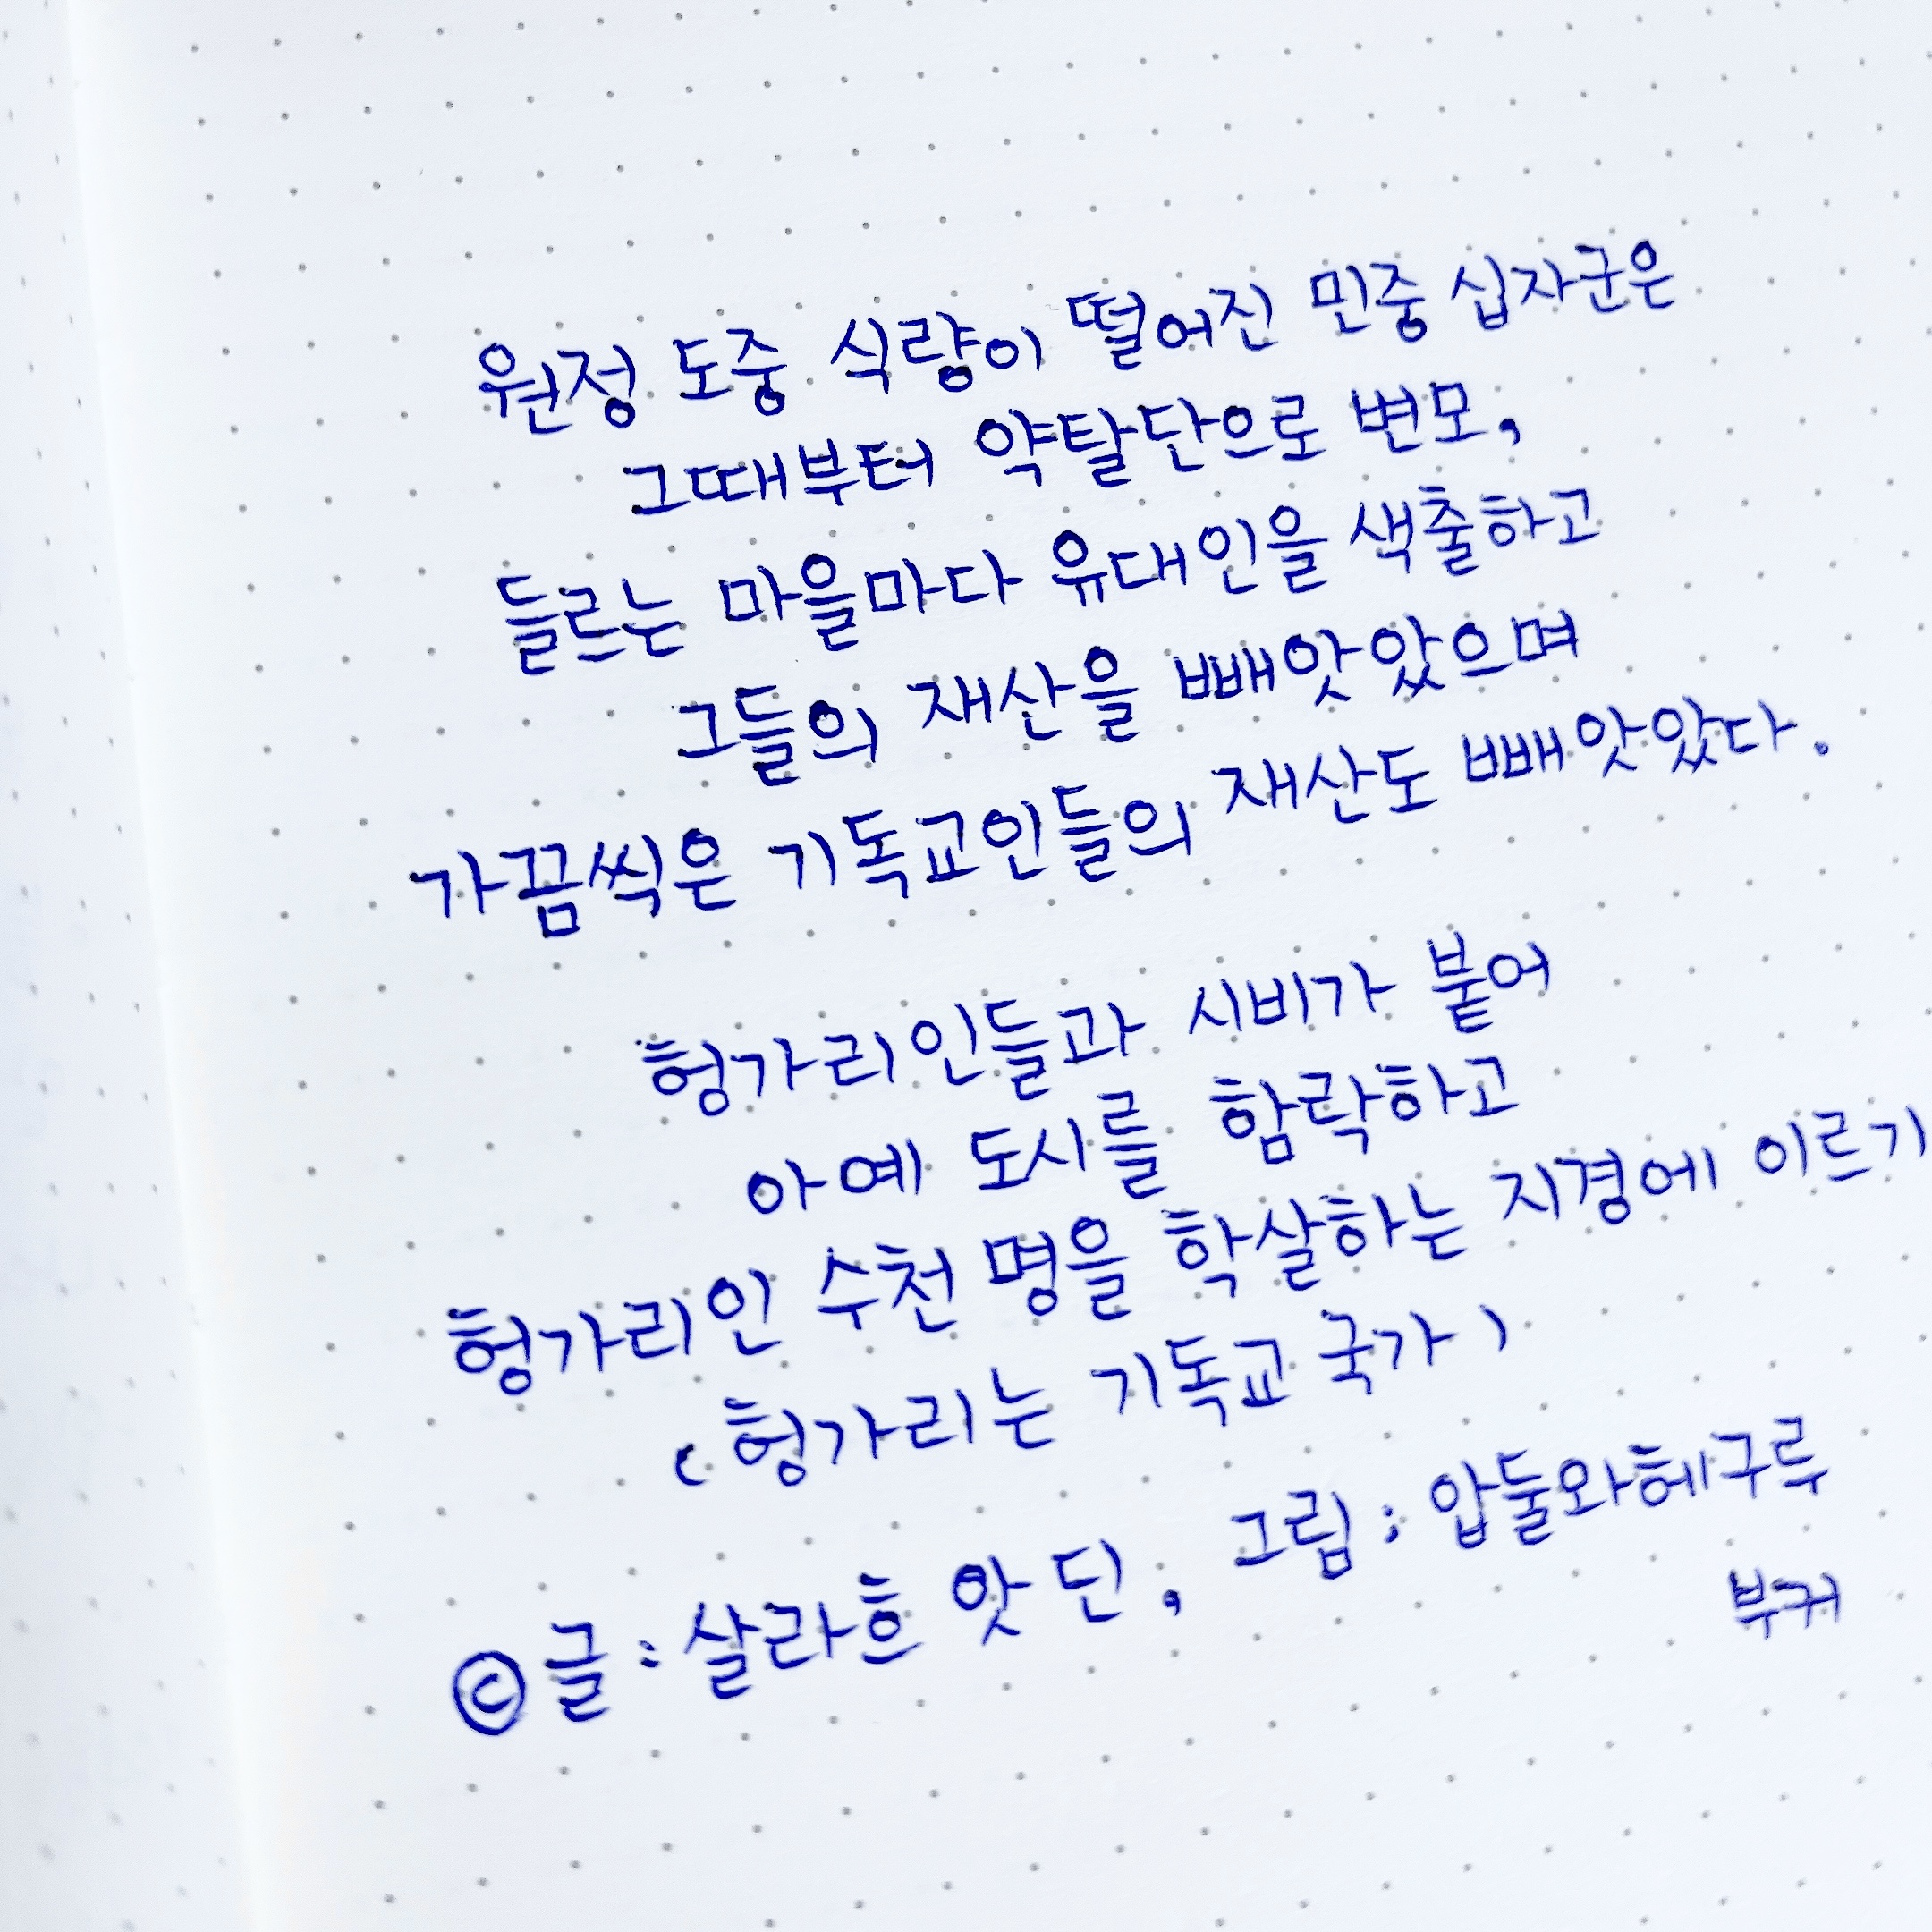 원정 도중 식량이 떨어진 민중 십자군은
그때부터 약탈단으로 변모,
들르는 마을마다 유대인을 색출하고
그들의 재산을 빼앗았으며
가끔씩은 기독교인들의 재산도 빼앗았다.
헝가리인들과 시비가 붙어
아예 도시를 함락하고
헝가리인 수천 명을 학살하는 지경에 이르기
(헝가리는 기독교 국가)
ⓒ글: 살라흐 앗 딘, 그림: 압둘와헤구루
부귀